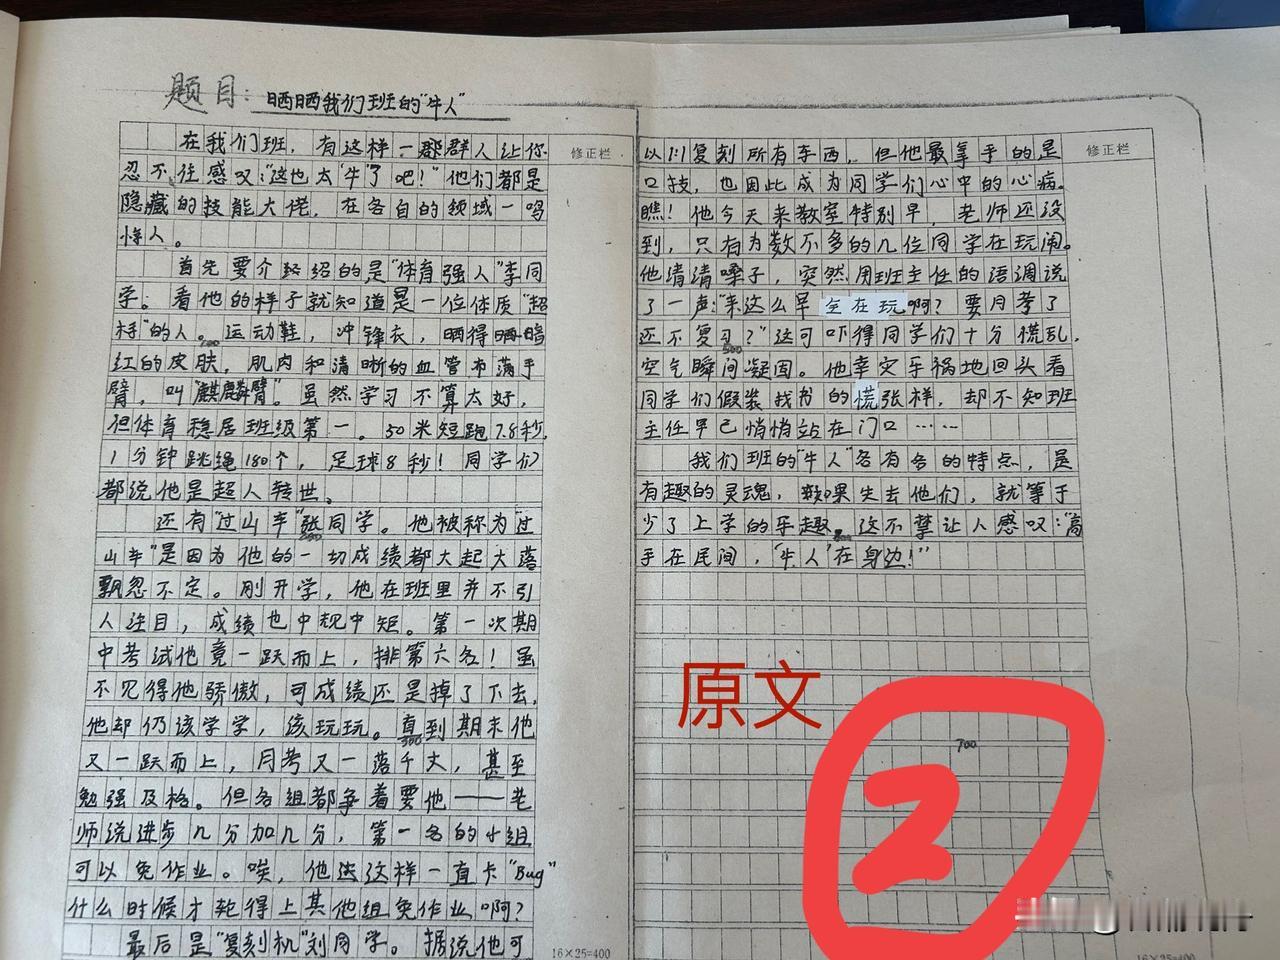 题目：晒晒我们班的"牛人"
在我们班，有这样一群人让你
修正栏
忍不住感叹："这也太'牛'了吧！"他们都是
隐藏的技能大佬，在各自的领域一鸣
惊人。
首先要介绍的是"体育强人"李同
学。看他的样子就知道是一位体质"超
标"的人。运动鞋，冲锋衣，晒得暗
红的皮肤，肌肉和清晰的血管布满手
臂，叫"麒麟臂"。虽然学习不算太好，
但体育稳居班级第一。50米短跑7.8秒，
1分钟跳绳180个，足球8秒！同学们
都说他是超人转世。
还有"过山车"张同学。他被称为"过
200
山车"是因为他的一切成绩都大起大落
飘忽不定。刚开学，他在班里并不引
人注目，成绩也中规中矩。第一次期
中考试他竟一跃而上，排第六名！虽
不见得他骄傲，可成绩还是掉了下去，
他却仍该学学，该玩玩。直到期末他
300
又一跃而上，月考又一落千丈，甚至
勉强及格。但各组都争着要他——老
师说进步几分加几分，第一名的小组
可以免作业。唉，他这样一直卡"Bug"
什么时候才轮得上其他组免作业啊？
最后是"复刻机"刘同学。据说他可
16×25=400
以1:1复刻所有东西，但他最拿手的是
修正栏
口技，也因此成为同学们心中的心病。
瞧！他今天来教室特别早，老师还没
到，只有为数不多的几位同学在玩闹。
他清清嗓子，突然用班主任的语调说
了一声："来这么早全在玩啊？要月考了
还不复习？"这可吓得同学们十分慌乱，
500
空气瞬间凝固。他幸灾乐祸地回头看
同学们假装找书的慌张样，却不知班
主任早已悄悄站在门口……
我们班的"牛人"各有各的特点，是
有趣的灵魂，如果失去他们，就等于
少了上学的乐趣。这不禁让人感叹："高
手在民间，'牛人'在身边！"
原文
700
2
16×25=400